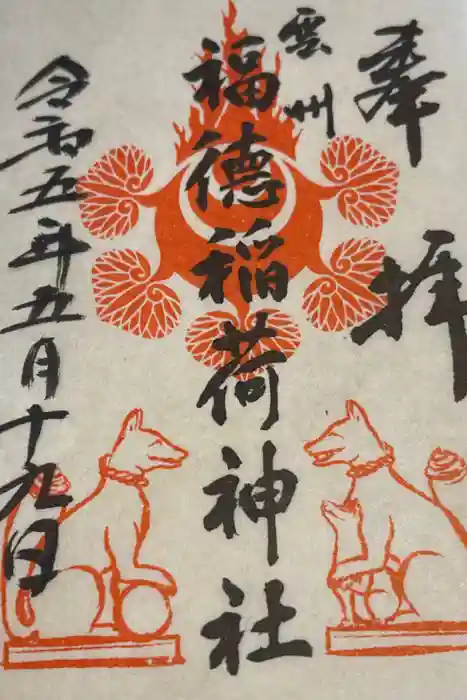 奉拝
雲州
福徳稲荷神社
令和五年五月十九日